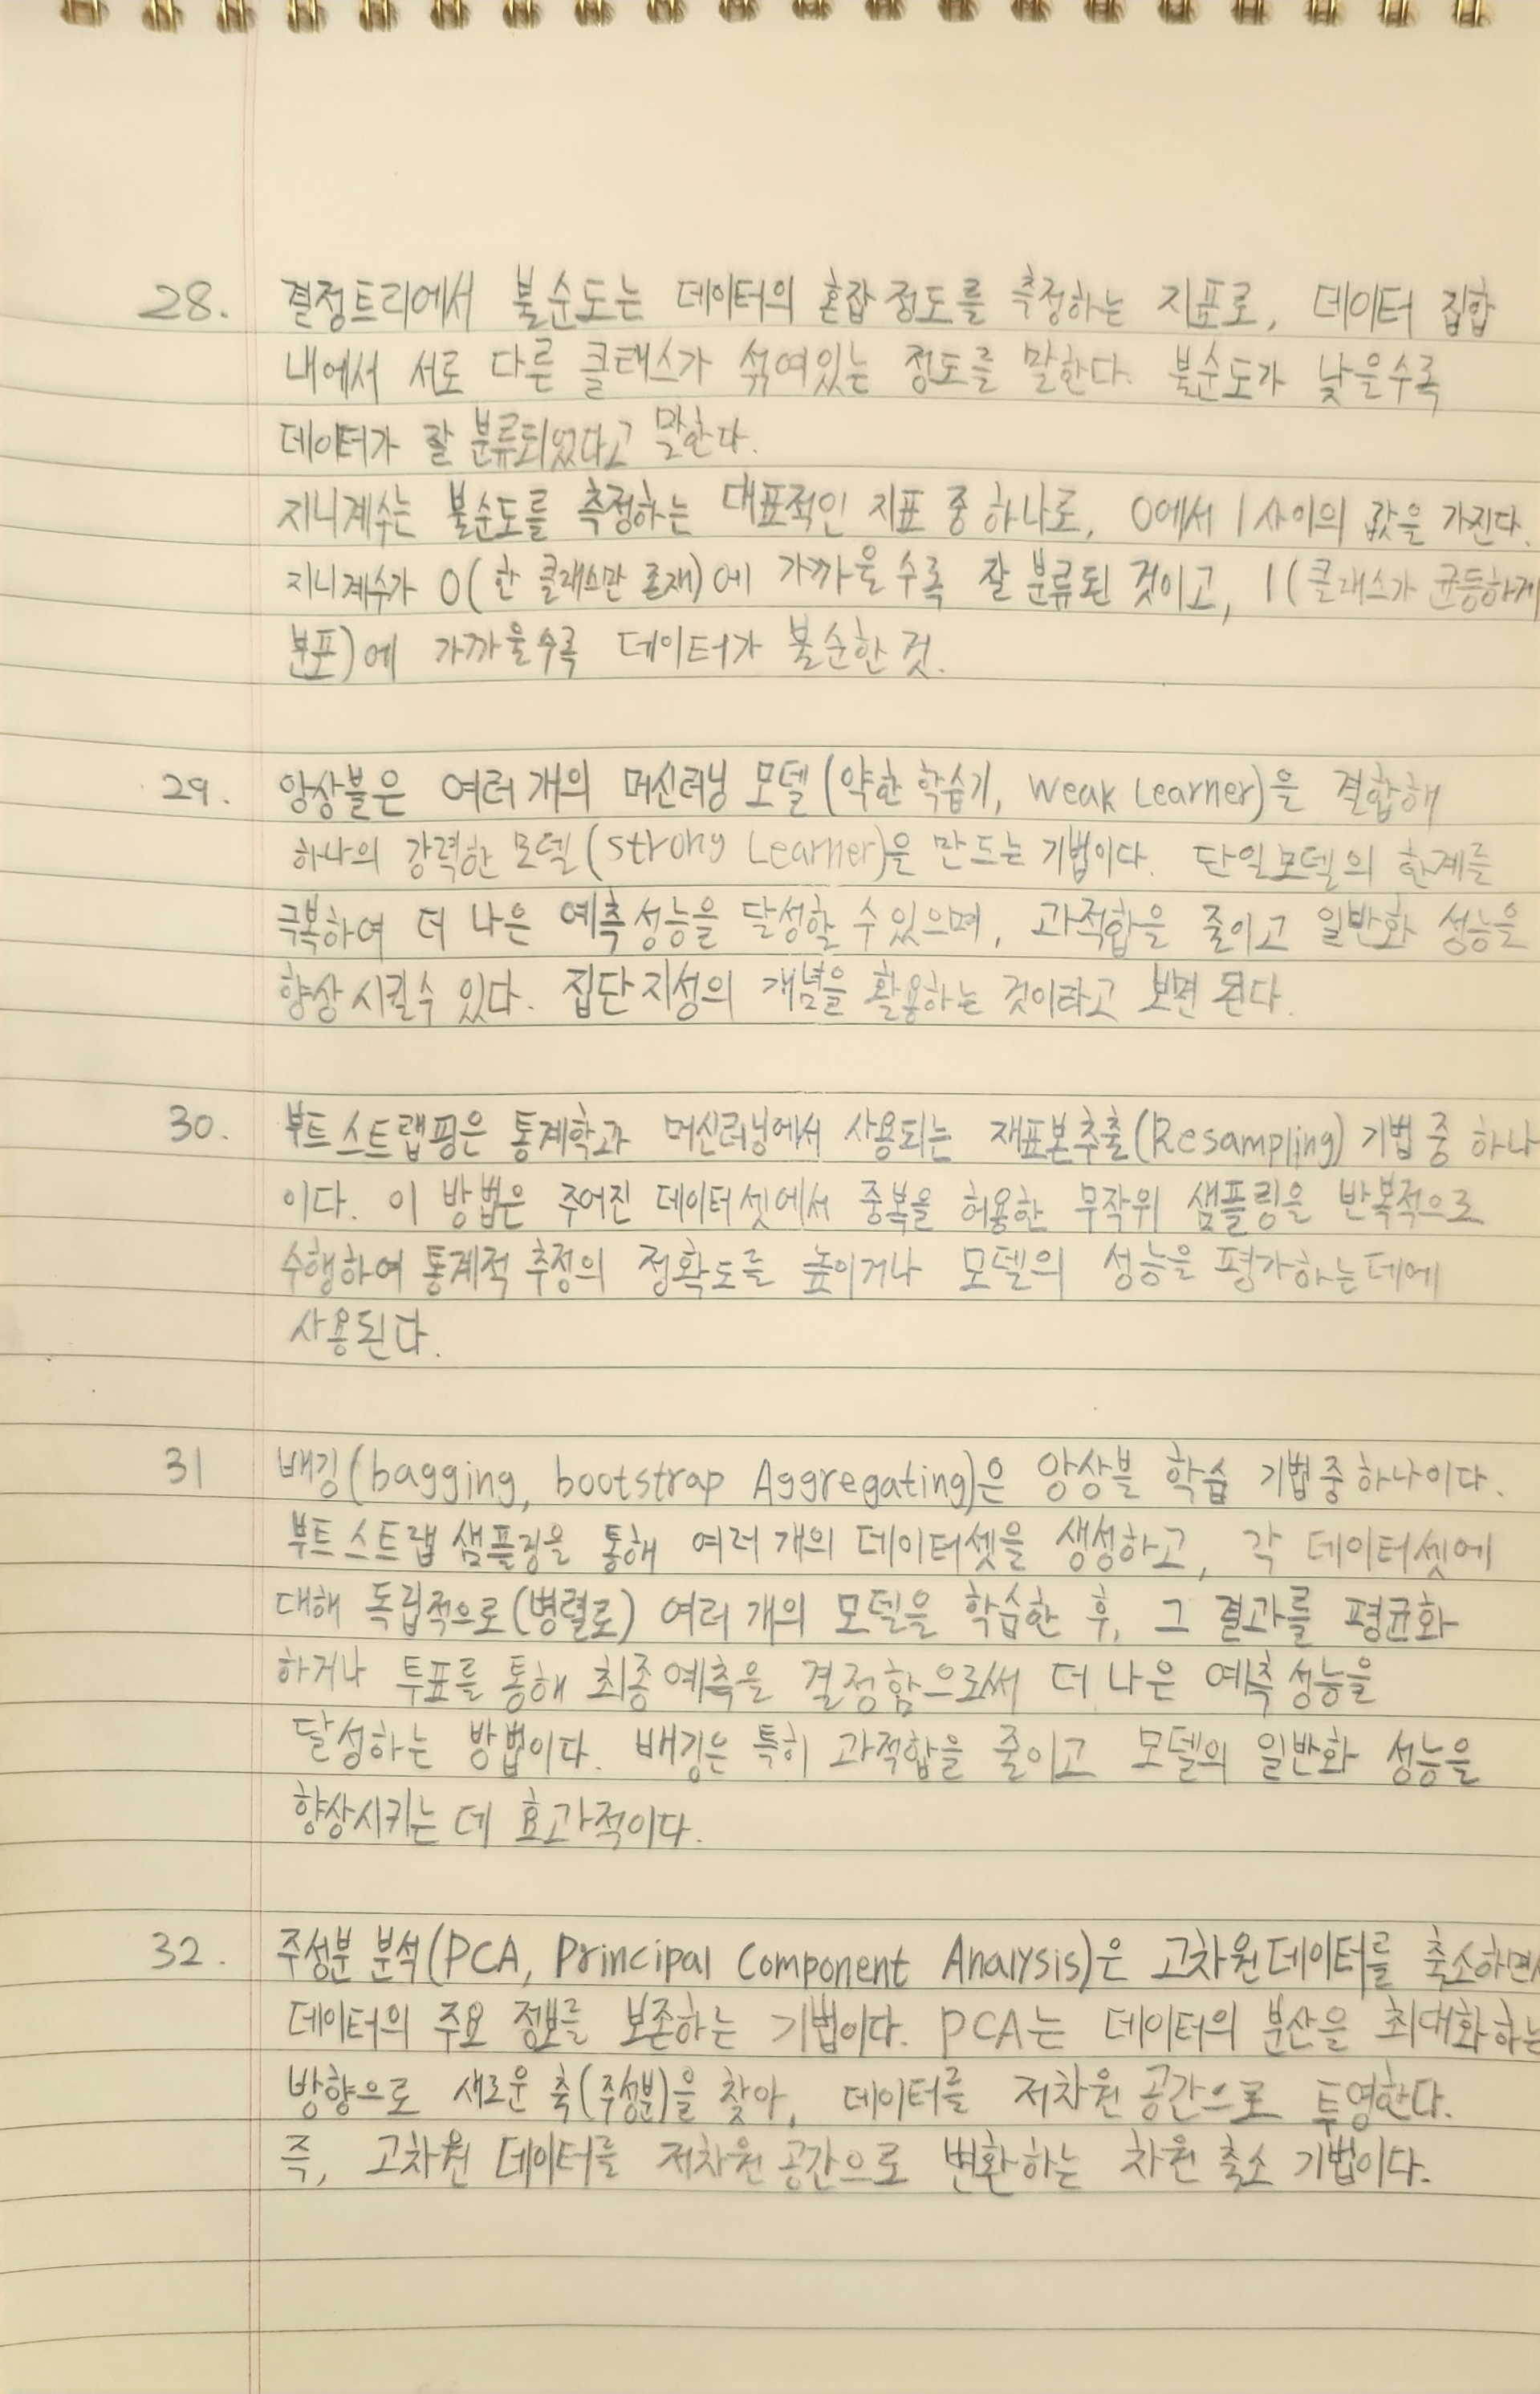 28. 결정트리에서 불순도는 데이터의 혼잡 정도를 측정하는 지표로, 데이터 집합
내에서 서로 다른 클래스가 섞여있는 정도를 말한다. 불순도가 낮을수록
데이터가 잘 분류되었다고 말한다.
지니계수는 불순도를 측정하는 대표적인 지표 중 하나로, 0에서 1 사이의 값을 가진다.
지니계수가 0(한 클래스만 존재)에 가까울수록 잘 분류된 것이고, 1(클래스가 균등하게
분포)에 가까울수록 데이터가 불순한 것.
29. 앙상블은 여러 개의 머신러닝 모델(약한 학습기, weak Learner)을 결합해
하나의 강력한 모델(strong Learner)을 만드는 기법이다. 단일모델의 한계를
극복하여 더 나은 예측 성능을 달성할 수 있으며, 과적합을 줄이고 일반화 성능을
향상시킬 수 있다. 집단지성의 개념을 활용하는 것이라고 보면 된다.
30. 부트스트랩핑은 통계학과 머신러닝에서 사용되는 재표본추출(Resampling) 기법 중 하나
이다. 이 방법은 주어진 데이터셋에서 중복을 허용한 무작위 샘플링을 반복적으로
수행하여 통계적 추정의 정확도를 높이거나 모델의 성능을 평가하는데에
사용된다.
31 배깅(bagging, bootstrap Aggregating)은 앙상블 학습 기법 중 하나이다.
부트스트랩 샘플링을 통해 여러 개의 데이터셋을 생성하고, 각 데이터셋에
대해 독립적으로(병렬로) 여러 개의 모델을 학습한 후, 그 결과를 평균화
하거나 투표를 통해 최종 예측을 결정함으로써 더 나은 예측 성능을
달성하는 방법이다. 배깅은 특히 과적합을 줄이고 모델의 일반화 성능을
향상시키는 데 효과적이다.
32. 주성분 분석(PCA, Principal Component Analysis)은 고차원 데이터를 축소하면서
데이터의 주요 정보를 보존하는 기법이다. PCA는 데이터의 분산을 최대화하는
방향으로 새로운 축(주성분)을 찾아, 데이터를 저차원 공간으로 투영한다.
즉, 고차원 데이터를 저차원 공간으로 변환하는 차원 축소 기법이다.